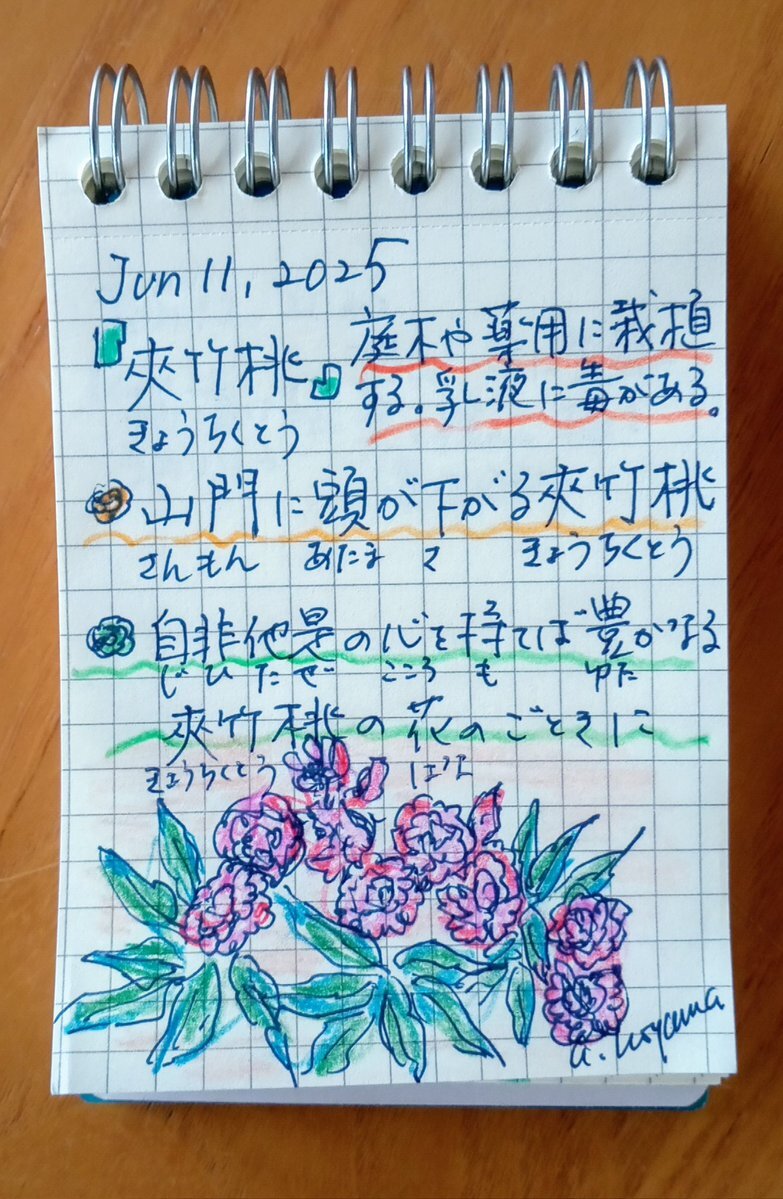 Jun 11, 2025
『夾竹桃』
きょうちくとう
庭木や薬用に栽植
する。乳液に毒がある。
山門に頭が下がる夾竹桃
さんもん あたま さ きょうちくとう
自非他是の心を持てば豊かなる
じひたぜ こころ も ゆた
夾竹桃の花のごときに
きょうちくとう はな